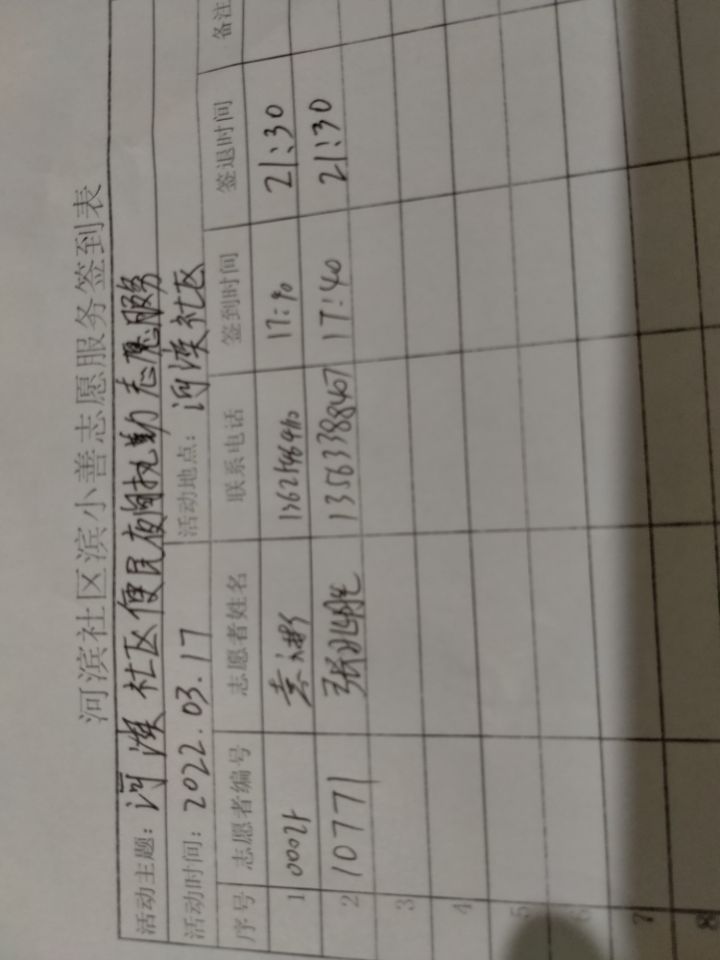 河滨社区滨小善志愿服务签到表
活动主题: 河滨社区便民夜间执勤志愿服务
活动时间: 2022.03.17 活动地点: 河滨社区
序号 志愿者编号 志愿者姓名 联系电话 签到时间 签退时间 备注
1 21:30
2 10771 13563388407 17:40 21:30
3
4
5
6
7
8